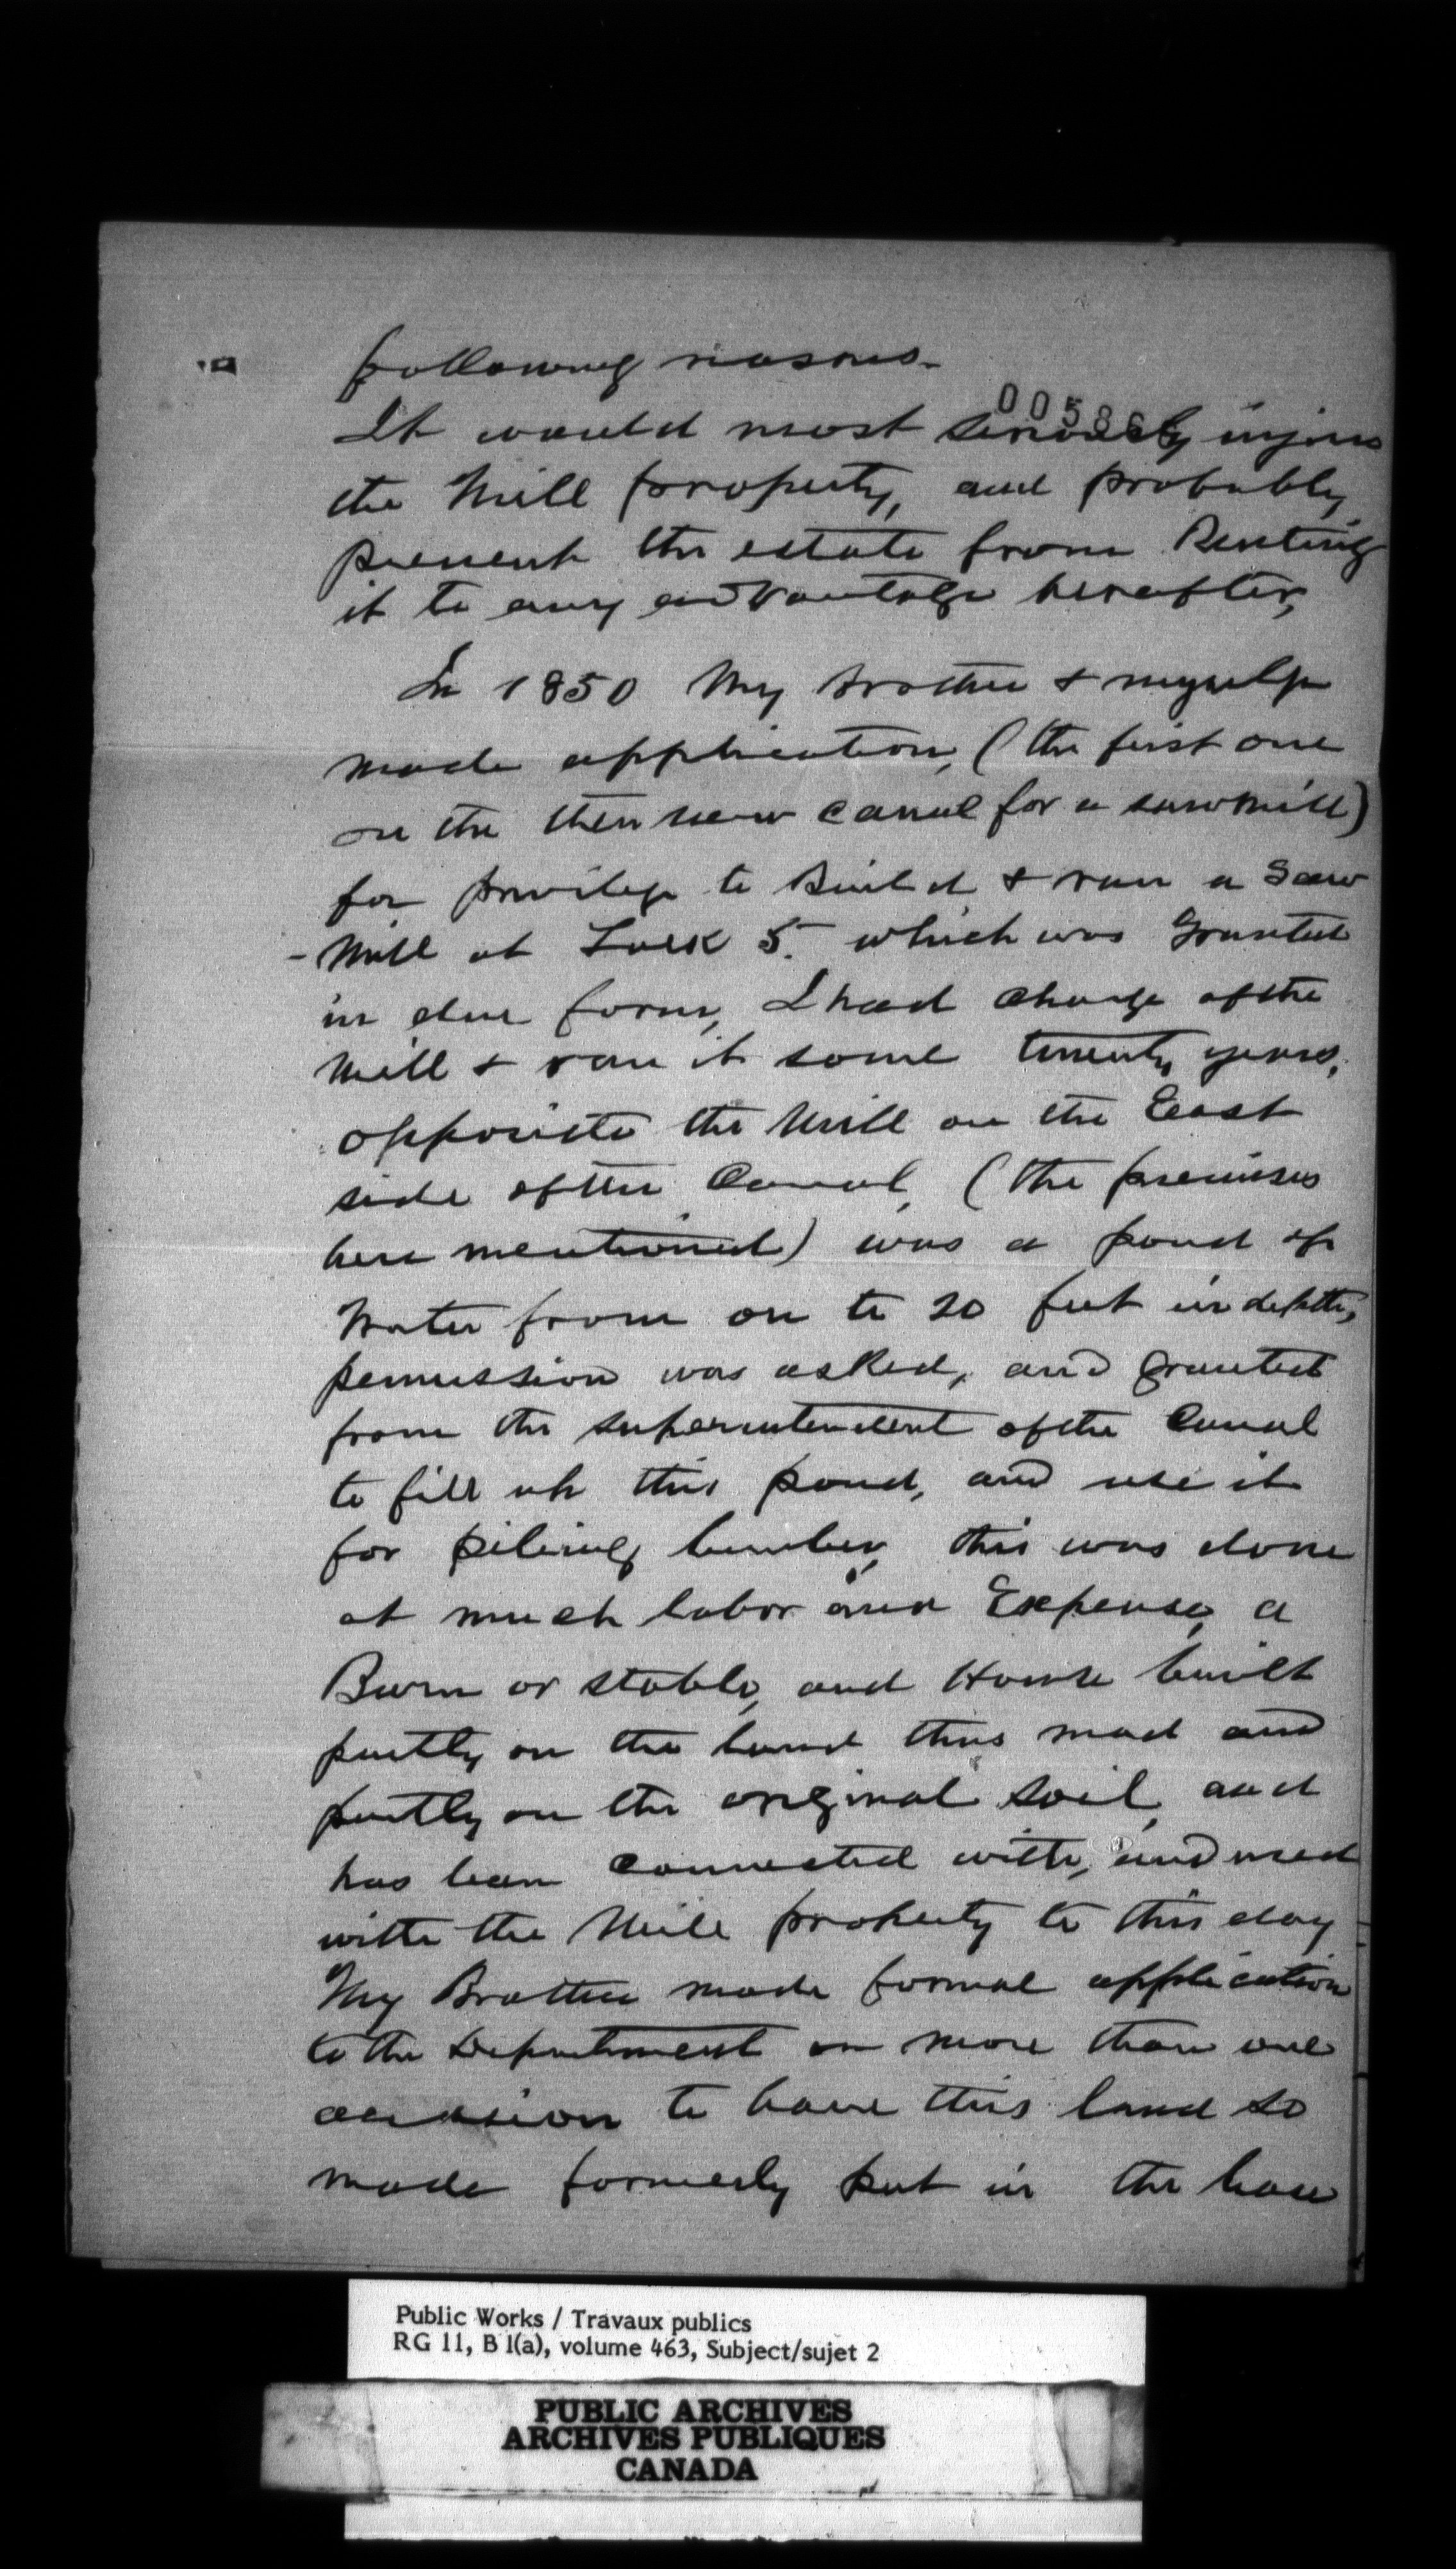 following reasons.
It would most seriously injure
the Mill property, and probably
prevent the estate from Renting
it to any advantage hereafter,
In 1850 My Brother & myself
made application, (the first one
on the then new Canal for a sawmill)
for privilege to Build & run a Saw
- Mill at Lock 5. which was Granted
in due form, I had charge of the
Mill & ran it some twenty years,
opposite the Mill on the East
side of the Canal, (the premises
here mentioned) was a pond of
Water from on to 20 feet in depth,
permission was asked, and granted
from the superintendent of the Canal
to fill up this pond, and use it
for piling lumber, this was done
at much labor and Expense, a
Barn or stable, and House built
partly on the land thus mad and
partly on the original soil, and
has been connected with, and used
with the Mill property to this day
My Brother made formal application
to the Department on more than one
occasion to have this land so
made formerly put in the lease
Public Works / Travaux publics
RG 11, B 1(a), volume 463, Subject/sujet 2
PUBLIC ARCHIVES
ARCHIVES PUBLIQUES
CANADA